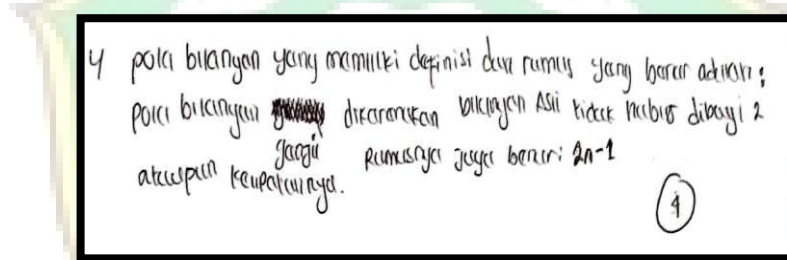 4 pola bilangan yang memiliki definisi dan rumus yang benar adalah:
pola bilangan dikarenakan bilangan Asli tidak habis dibagi 2
ganjil
ataupun kelipatannya. Rumusnya juga benar: 2n-1
4